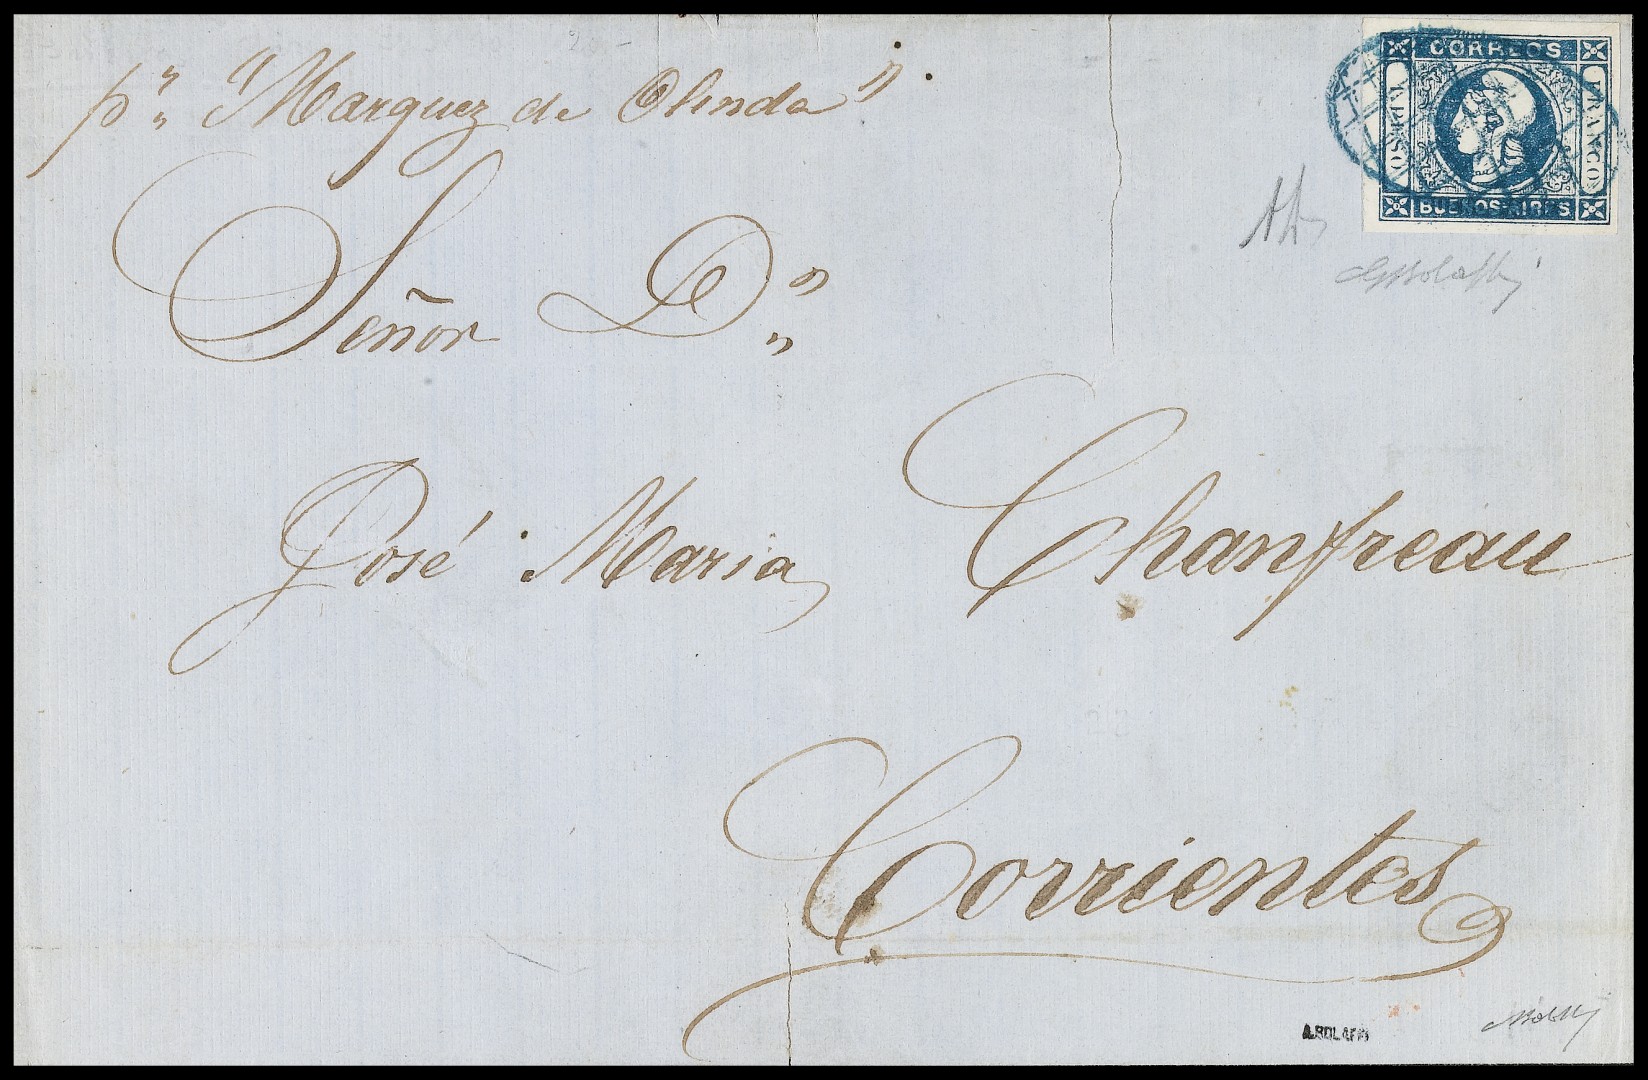 pr „ "Marquez de Olinda".
CORREOS
UN PESO
FRANCO
BUENOS-AIRES
Señor Dn „
José Maria Chanfreau
Corrientes
A.BOLAFFI